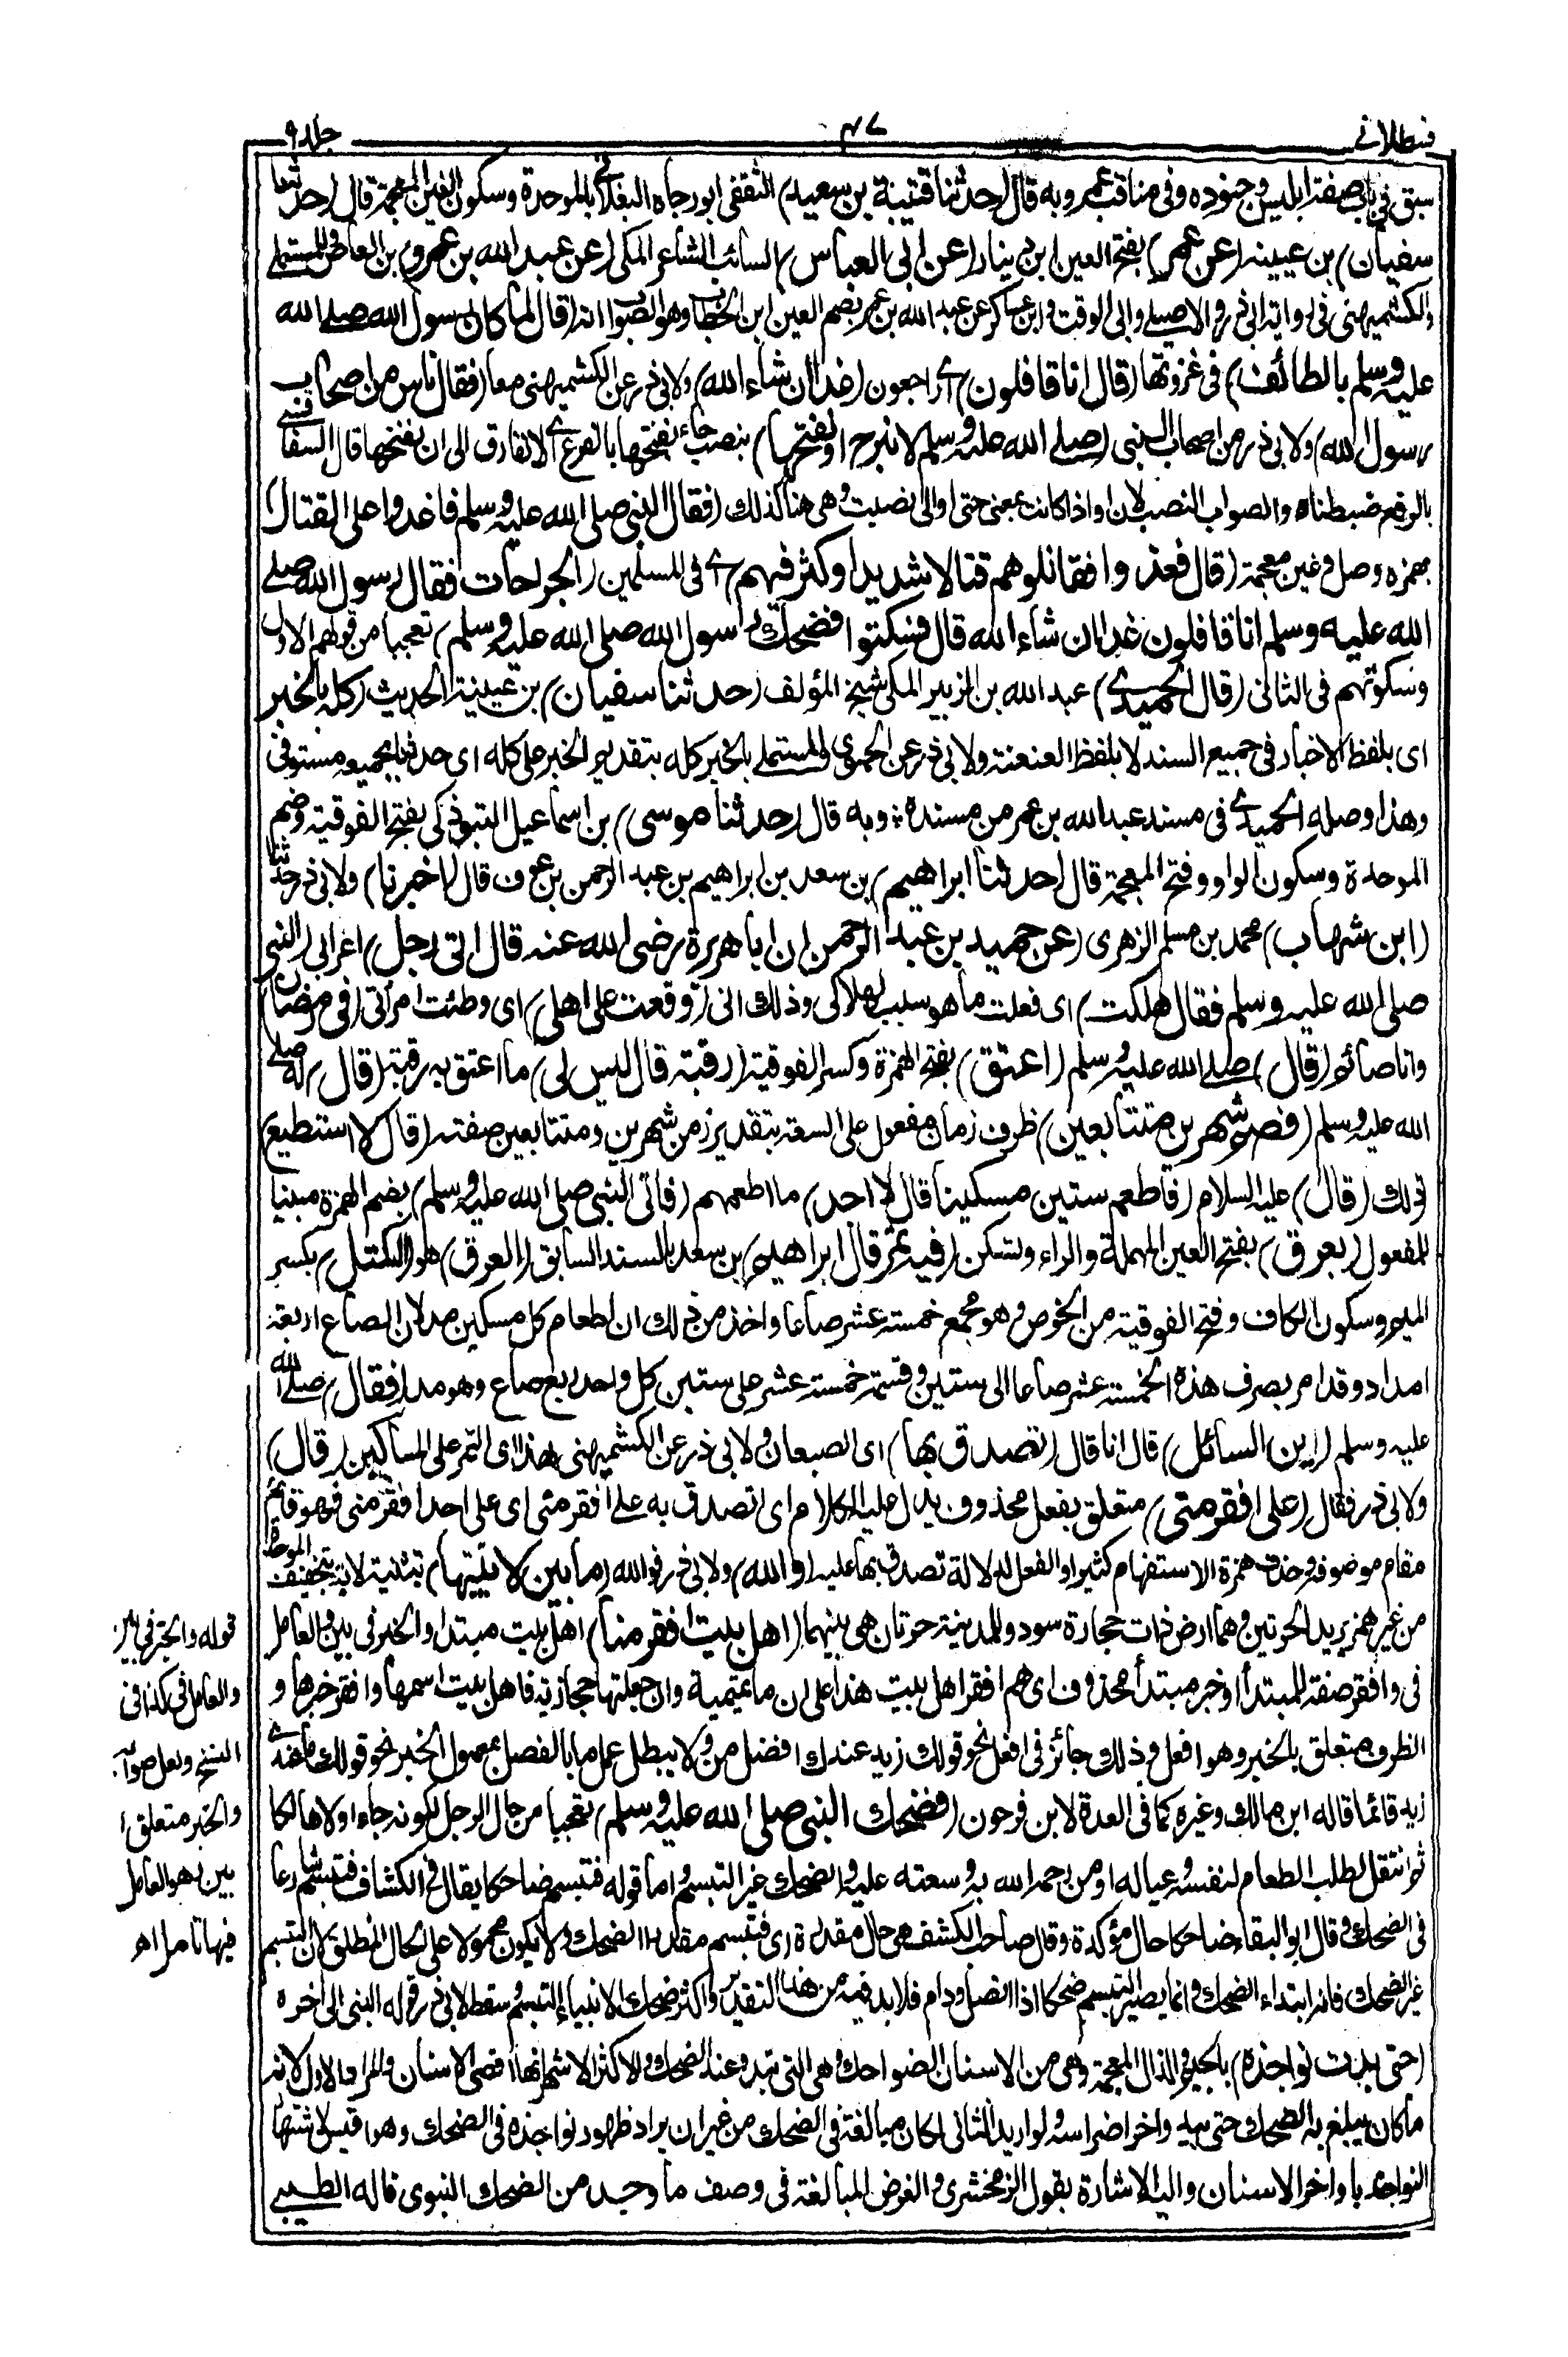 قسطلانے
٤٧
جلد ٩
سبق في باب صفة ابليس وجنوده وفى مناقب عمر وبه قال (حدثنا قتيبة بن سعيد) الثقفى ابو رجاء البغلانى بالموحدة وسكون الغين المعجمة قال (حدثنا
سفيان) بن عيينة (عن عمرو) بفتح العين ابن دينار (عن ابى العباس) السائب الشاعر المكى (عن عبد الله بن عمرو) بن العاص وللمستملے
والكشميهنى فى رواية ابى ذر والاصيلے وابى الوقت وابن عساكر عن عبد الله بن عمر بضم العين ابن الخطاب وهو الصواب انه (قال لما كان رسول الله صلے الله
عليه وسلم بالطائف) فى غزوتها (قال انا قافلون) اے راجعون (غدا ان شاء الله) ولابى ذر عن الكشميهنى معا (فقال ناس من اصحاب
رسول الله) ولابى ذر من اصحاب النبى (صلے الله عليه وسلم لا نبرح او نفتحها) بنصب حاء نفتحها بالفرع اے لا نفارق الى ان نفتحها قال السفاقسے
بالرفع ضبطناه والصواب النصب لان او اذا كانت بمعنى حتى او الى نصبت وهى هنا كذلك (فقال النبى صلى الله عليه وسلم فاغدوا على القتال)
بهمزه وصل وغين معجمة (قال فغدوا فقاتلوهم قتالا شديدا وكثر فيهم) اے فى المسلمين (الجراحات فقال رسول الله صلے
الله عليه وسلم انا قافلون غدا ان شاء الله قال فسكتوا فضحك رسول الله صلى الله عليه وسلم) تعجبا من قولهم الاول
وسكوتهم فى الثانى (قال الحميدے) عبد الله بن الزبير المكى شيخ المؤلف (حدثنا سفيان) بن عيينة الحديث (كله بالخبر
اى بلفظ الاخبار فى جميع السند لا بلفظ العنعنة ولابى ذر عن الحموى والمستملے بالخبر كله بتقديم الخبر على كله اى حدثنا بجميعه مستوفى
وهذا وصله الحميدے فى مسند عبد الله بن عمر من مسنده * وبه قال (حدثنا موسى) بن اسماعيل التبوذكى بفتح الفوقية وضم
الموحدة وسكون الواو وفتح المعجمة قال (حدثنا ابراهيم) بن سعد بن ابراهيم بن عبد الرحمن بن عوف قال (اخبرنا) ولابى ذر حدثنا
(ابن شهاب) محمد بن مسلم الزهرى (عن حميد بن عبد الرحمن ان ابا هريرة رضى الله عنه قال اتى رجل) اعرابى (النبى
صلى الله عليه وسلم فقال هلكت) اى فعلت ما هو سبب لهلاكى وذلك انى (وقعت على اهلى) اى وطئت امرأتى (فى رمضان)
وانا صائم (قال) صلے الله عليه وسلم (اعتق) بفتح الهمزة وكسر الفوقية (رقبة قال ليس لى) ما اعتق به رقبة (قال) له صلے
الله عليه وسلم (فصم شهرين متتابعين) ظرف زمان مفعول على السعة بتقدير زمن شهرين ومتتابعين صفته (قال لا استطيع)
ذلك (قال) عليه السلام (فاطعم ستين مسكينا قال لا احد) ما اطعمهم (فاتى النبى صلى الله عليه وسلم) بضم الهمزة مبنيا
للمفعول (بعرق) بفتح العين المهملة والراء وتسكن (فيه تمر قال ابراهيم) بن سعد بالسند السابق (العرق) هو (المكتل) بكسر
الميم وسكون الكاف وفتح الفوقية من الخوص وهو مجمع خمسة عشر صاعا واخذ من ذلك ان اطعام كل مسكين مد لان الصاع اربعة
امداد وقد امر بصرف هذه الخمسة عشر صاعا الى ستين وقسمة خمسة عشر على ستين كل واحد ربع صاع وهو مد (فقال) صلے الله
عليه وسلم (اين السائل) قال انا قال (تصدق بها) اى الصيعان ولابى ذر عن الكشميهنى بهذا اى التمر على المساكين (قال)
ولابى ذر فقال (على افقر منى) متعلق بفعل محذوف يدل عليه الكلام اى اتصدق به على افقر منى اى على احد افقر منى فهو قائم
مقام موصوفه وحذف همزة الاستفهام كثير او الفعل لدلالة تصدق بها عليه (والله) ولابى ذر فوالله (ما بين لابتيها) تثنية لابة بتخفيف الموحدة
من غير همز يريد الحرتين وهما ارض ذات حجارة سود وللمدينة حرتان هى بينهما (اهل بيت افقر منا) اهل بيت مبتدا والخبر فى بين والعامل
فى وافقر صفة للمبتدأ او خبر مبتدأ محذوف اى هم افقر اهل بيت هذا على ان ما تميمية وان جعلتها حجازية فاهل بيت اسمها وافقر خبرها و
الظرف متعلق بالخبر وهو افعل وذلك جائز فى افعل نحو قولك زيد عندك افضل من ولا يبطل عمل ما بالفصل بمعمول الخبر نحو قولك ما عندے
زيد قائما قاله ابن مالك وغيره كما فى العدة لابن فرحون (فضحك النبى صلى الله عليه وسلم) تعجبا من حال الرجل لكونه جاء اولا هالكا
ثم انتقل لطلب الطعام لنفسه وعياله او من رحمة الله به وسعته عليه والضحك غير التبسم واما قوله فتبسم ضاحكا يقال فى الكشاف فتبسم شارعا
فى الضحك وقال ابو البقاء ضاحكا حال مؤكدة وقال صاحب الكشف هى حال مقدرة اى فتبسم مقدرا الضحك ولا يكون محمولا على الحال المطلق لان التبسم
غير الضحك فانه ابتداء الضحك وانما يصير التبسم ضحكا اذا اتصل ودام فلا بد فيه من هذا التقدير واكثر ضحك الانبياء التبسم وسقط لابى ذر قوله النبى الى اخره
(حتى بدت نواجذه) بالجيم والذال المعجمة وهى من الاسنان الضواحك وهى التى تبدو عند الضحك والاكثر الاشهر انها اقصى الاسنان والمراد الاول لانه
ما كان يبلغ به الضحك حتى يبدو اخر اضراسه ولو اريد الثانى لكان مبالغة فى الضحك من غير ان يراد ظهور نواجذه فى الضحك وهو اقيس لاشتهار
النواجذ باواخر الاسنان واليه الاشارة بقول الزمخشرى والغرض المبالغة فى وصف ما وجد من الضحك النبوى قاله الطيبے
قوله والخبر فى بين
والعامل فى كذا فى
النسخ ولعل صوابه
والخبر متعلق
بين وهو العامل
فيها تامل اه